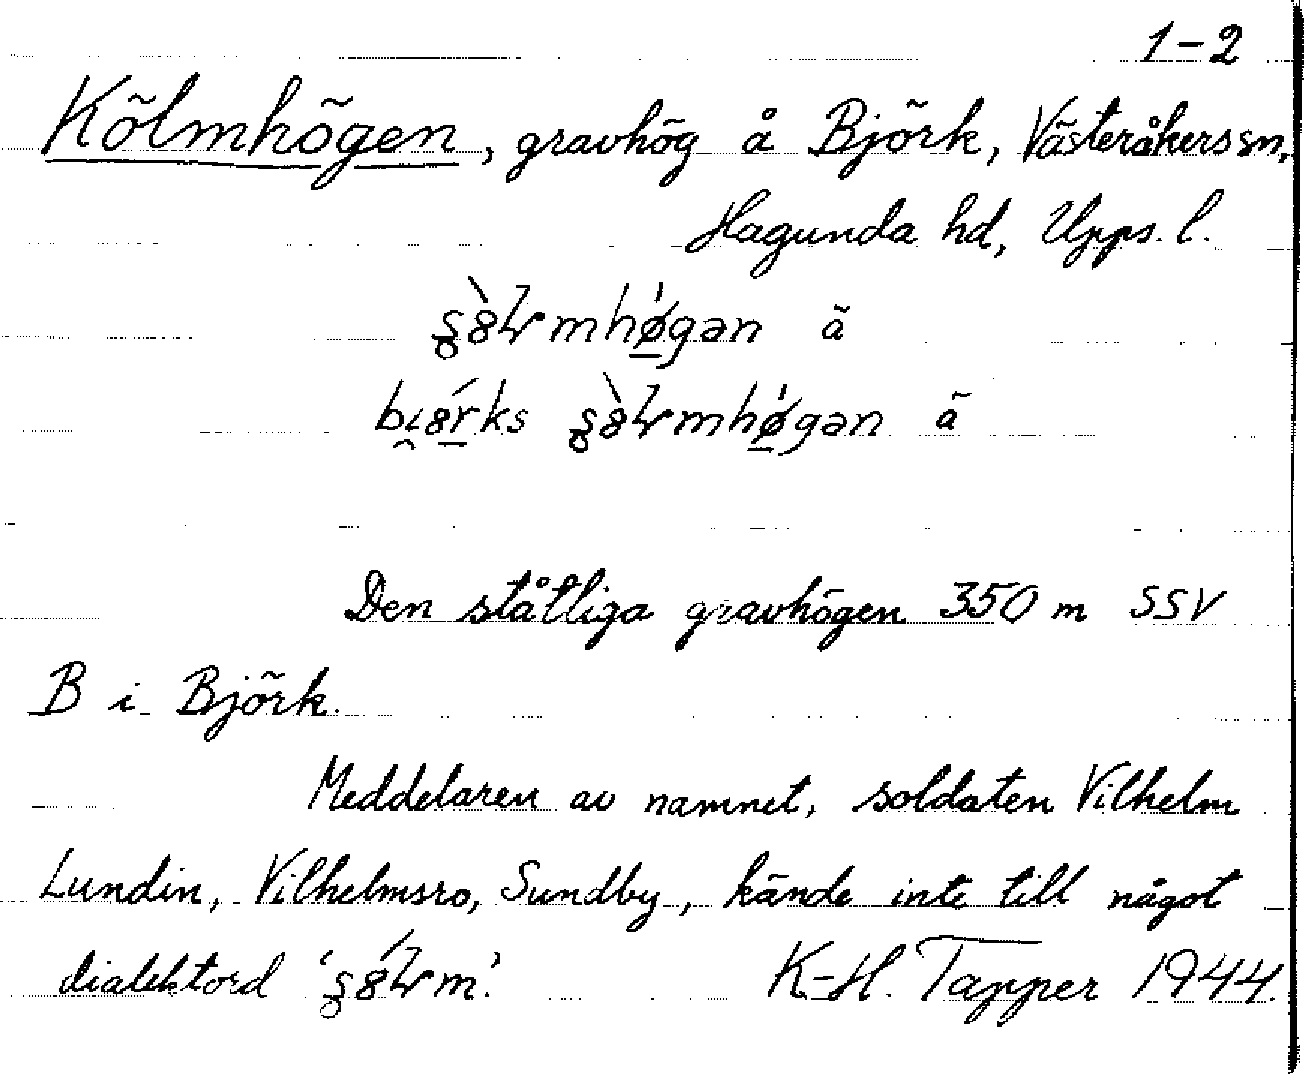 1-2
Kölmhögen, gravhög å Björk, Västeråkers sn,
Hagunda hd, Upps. l.
mhøgən ã
mhøgən ã
Den ståtliga gravhögen 350 m SSV
B i Björk.
Meddelaren av namnet, soldaten Vilhelm
Lundin, Vilhelmsro, Sundby, kände inte till något
dialektord
K-H. Tapper 1944.